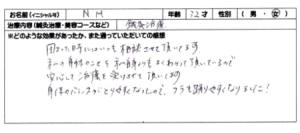 お名前(イニシャル可) NM 年齢 72才 性別 (男・女)
治療内容(鍼灸治療・美容コースなど) 鍼灸治療
※どのような効果があったか、また通っていただいての感想
困った時にはいつも相談させて頂いてます
私の身体のことを私自身よりもよくわかって頂いているので
安心して治療を受けさせて頂いてます
身体のバランスがとりやすくなったので、フラも踊りやすくなりました!